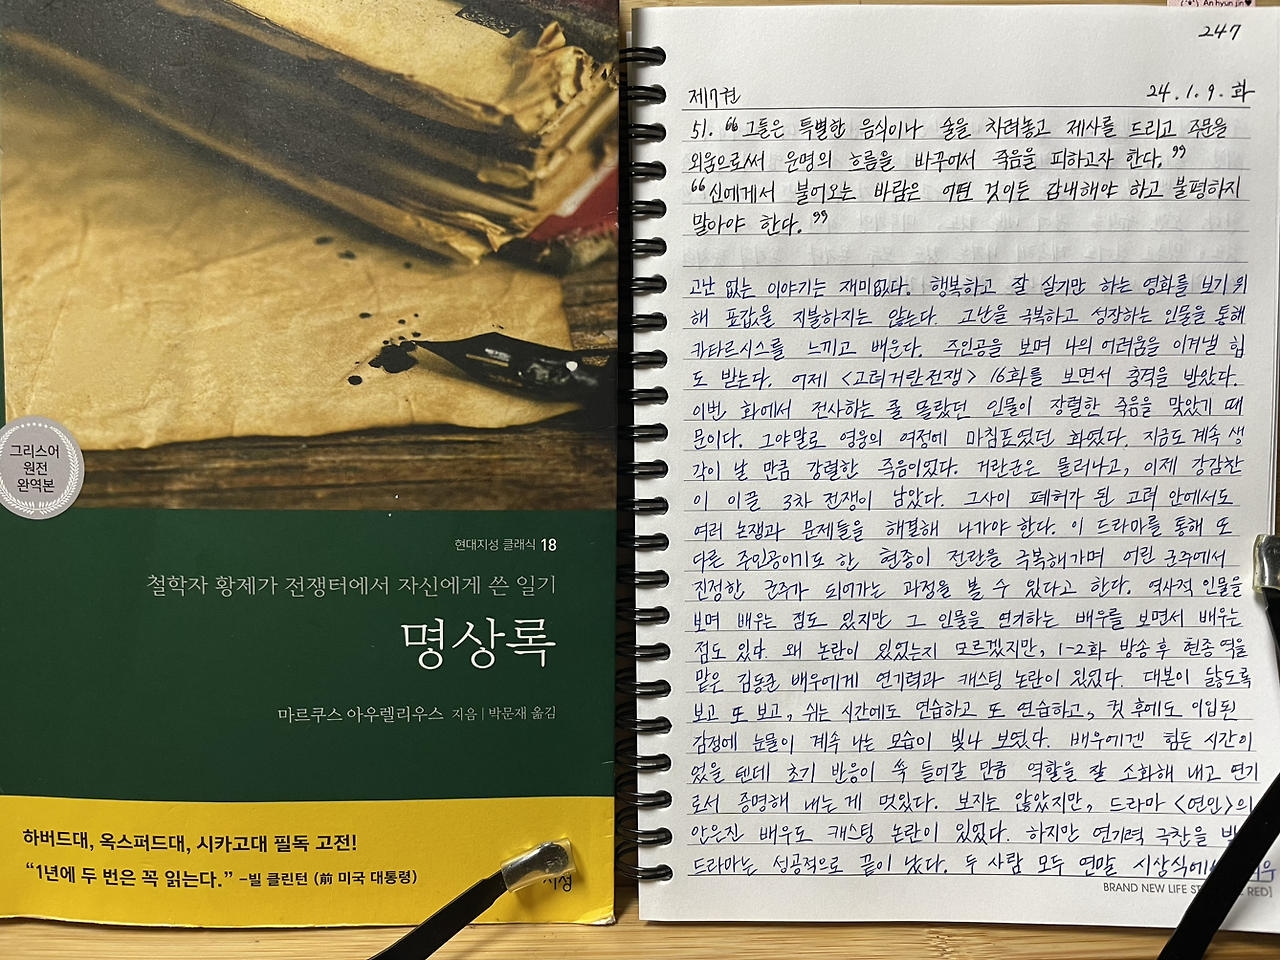 그리스어
원전
완역본
현대지성 클래식 18
철학자 황제가 전쟁터에서 자신에게 쓴 일기
명상록
마르쿠스 아우렐리우스 지음 | 박문재 옮김
하버드대, 옥스퍼드대, 시카고대 필독 고전!
“1년에 두 번은 꼭 읽는다.” –빌 클린턴 (前 미국 대통령)
지성
An hyun jin♥
247
제7권 24.1.9.화
51. “그들은 특별한 음식이나 술을 차려놓고 제사를 드리고 주문을
외움으로써 운명의 흐름을 바꾸어서 죽음을 피하고자 한다.”
“신에게서 불어오는 바람은 어떤 것이든 감내해야 하고 불평하지
말아야 한다.”
고난 없는 이야기는 재미없다. 행복하고 잘 살기만 하는 영화를 보기 위
해 표값을 지불하지는 않는다. 고난을 극복하고 성장하는 인물을 통해
카타르시스를 느끼고 배운다. 주인공을 보며 나의 어려움을 이겨낼 힘
도 받는다. 어제 <고려거란전쟁> 16화를 보면서 충격을 받았다.
이번 화에서 전사하는 줄 몰랐던 인물이 장렬한 죽음을 맞았기 때
문이다. 그야말로 영웅의 여정에 마침표였던 화였다. 지금도 계속 생
각이 날 만큼 강렬한 죽음이었다. 거란군은 물러나고, 이제 강감찬
이 이끌 3차 전쟁이 남았다. 그사이 폐허가 된 고려 안에서도
여러 논쟁과 문제들을 해결해 나가야 한다. 이 드라마를 통해 또
다른 주인공이기도 한 현종이 전란을 극복해가며 어린 군주에서
진정한 군주가 되어가는 과정을 볼 수 있다고 한다. 역사적 인물을
보며 배우는 점도 있지만 그 인물을 연기하는 배우를 보면서 배우는
점도 있다. 왜 논란이 있었는지 모르겠지만, 1-2화 방송 후 현종 역을
맡은 김동준 배우에게 연기력과 캐스팅 논란이 있었다. 대본이 닳도록
보고 또 보고, 쉬는 시간에도 연습하고 또 연습하고, 컷 후에도 이입된
감정에 눈물이 계속 나는 모습이 빛나 보였다. 배우에겐 힘든 시간이
었을 텐데 초기 반응이 쏙 들어갈 만큼 역할을 잘 소화해 내고 연기
로서 증명해 내는 게 멋있다. 보지는 않았지만, 드라마 <연인>의
안은진 배우도 캐스팅 논란이 있었다. 하지만 연기력 극찬을
드라마는 성공적으로 끝이 났다. 두 사람 모두 연말 시상식에
BRAND NEW LIFE RED]